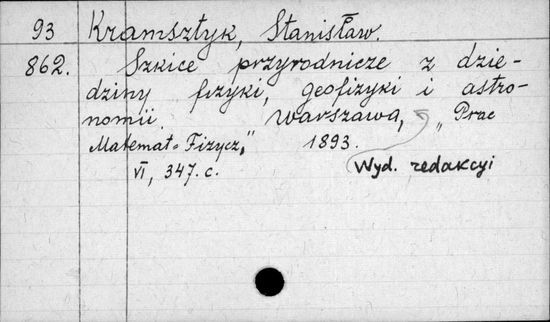 93 Kramsztyk, Stanisław.
862. Szkice przyrodnicze z dzie-
dziny fizyki, geofizyki i astro-
nomii. Warszawa, „Prac
Matemat-Fizycz," 1893.
VI, 347. c. Wyd. redakcyi